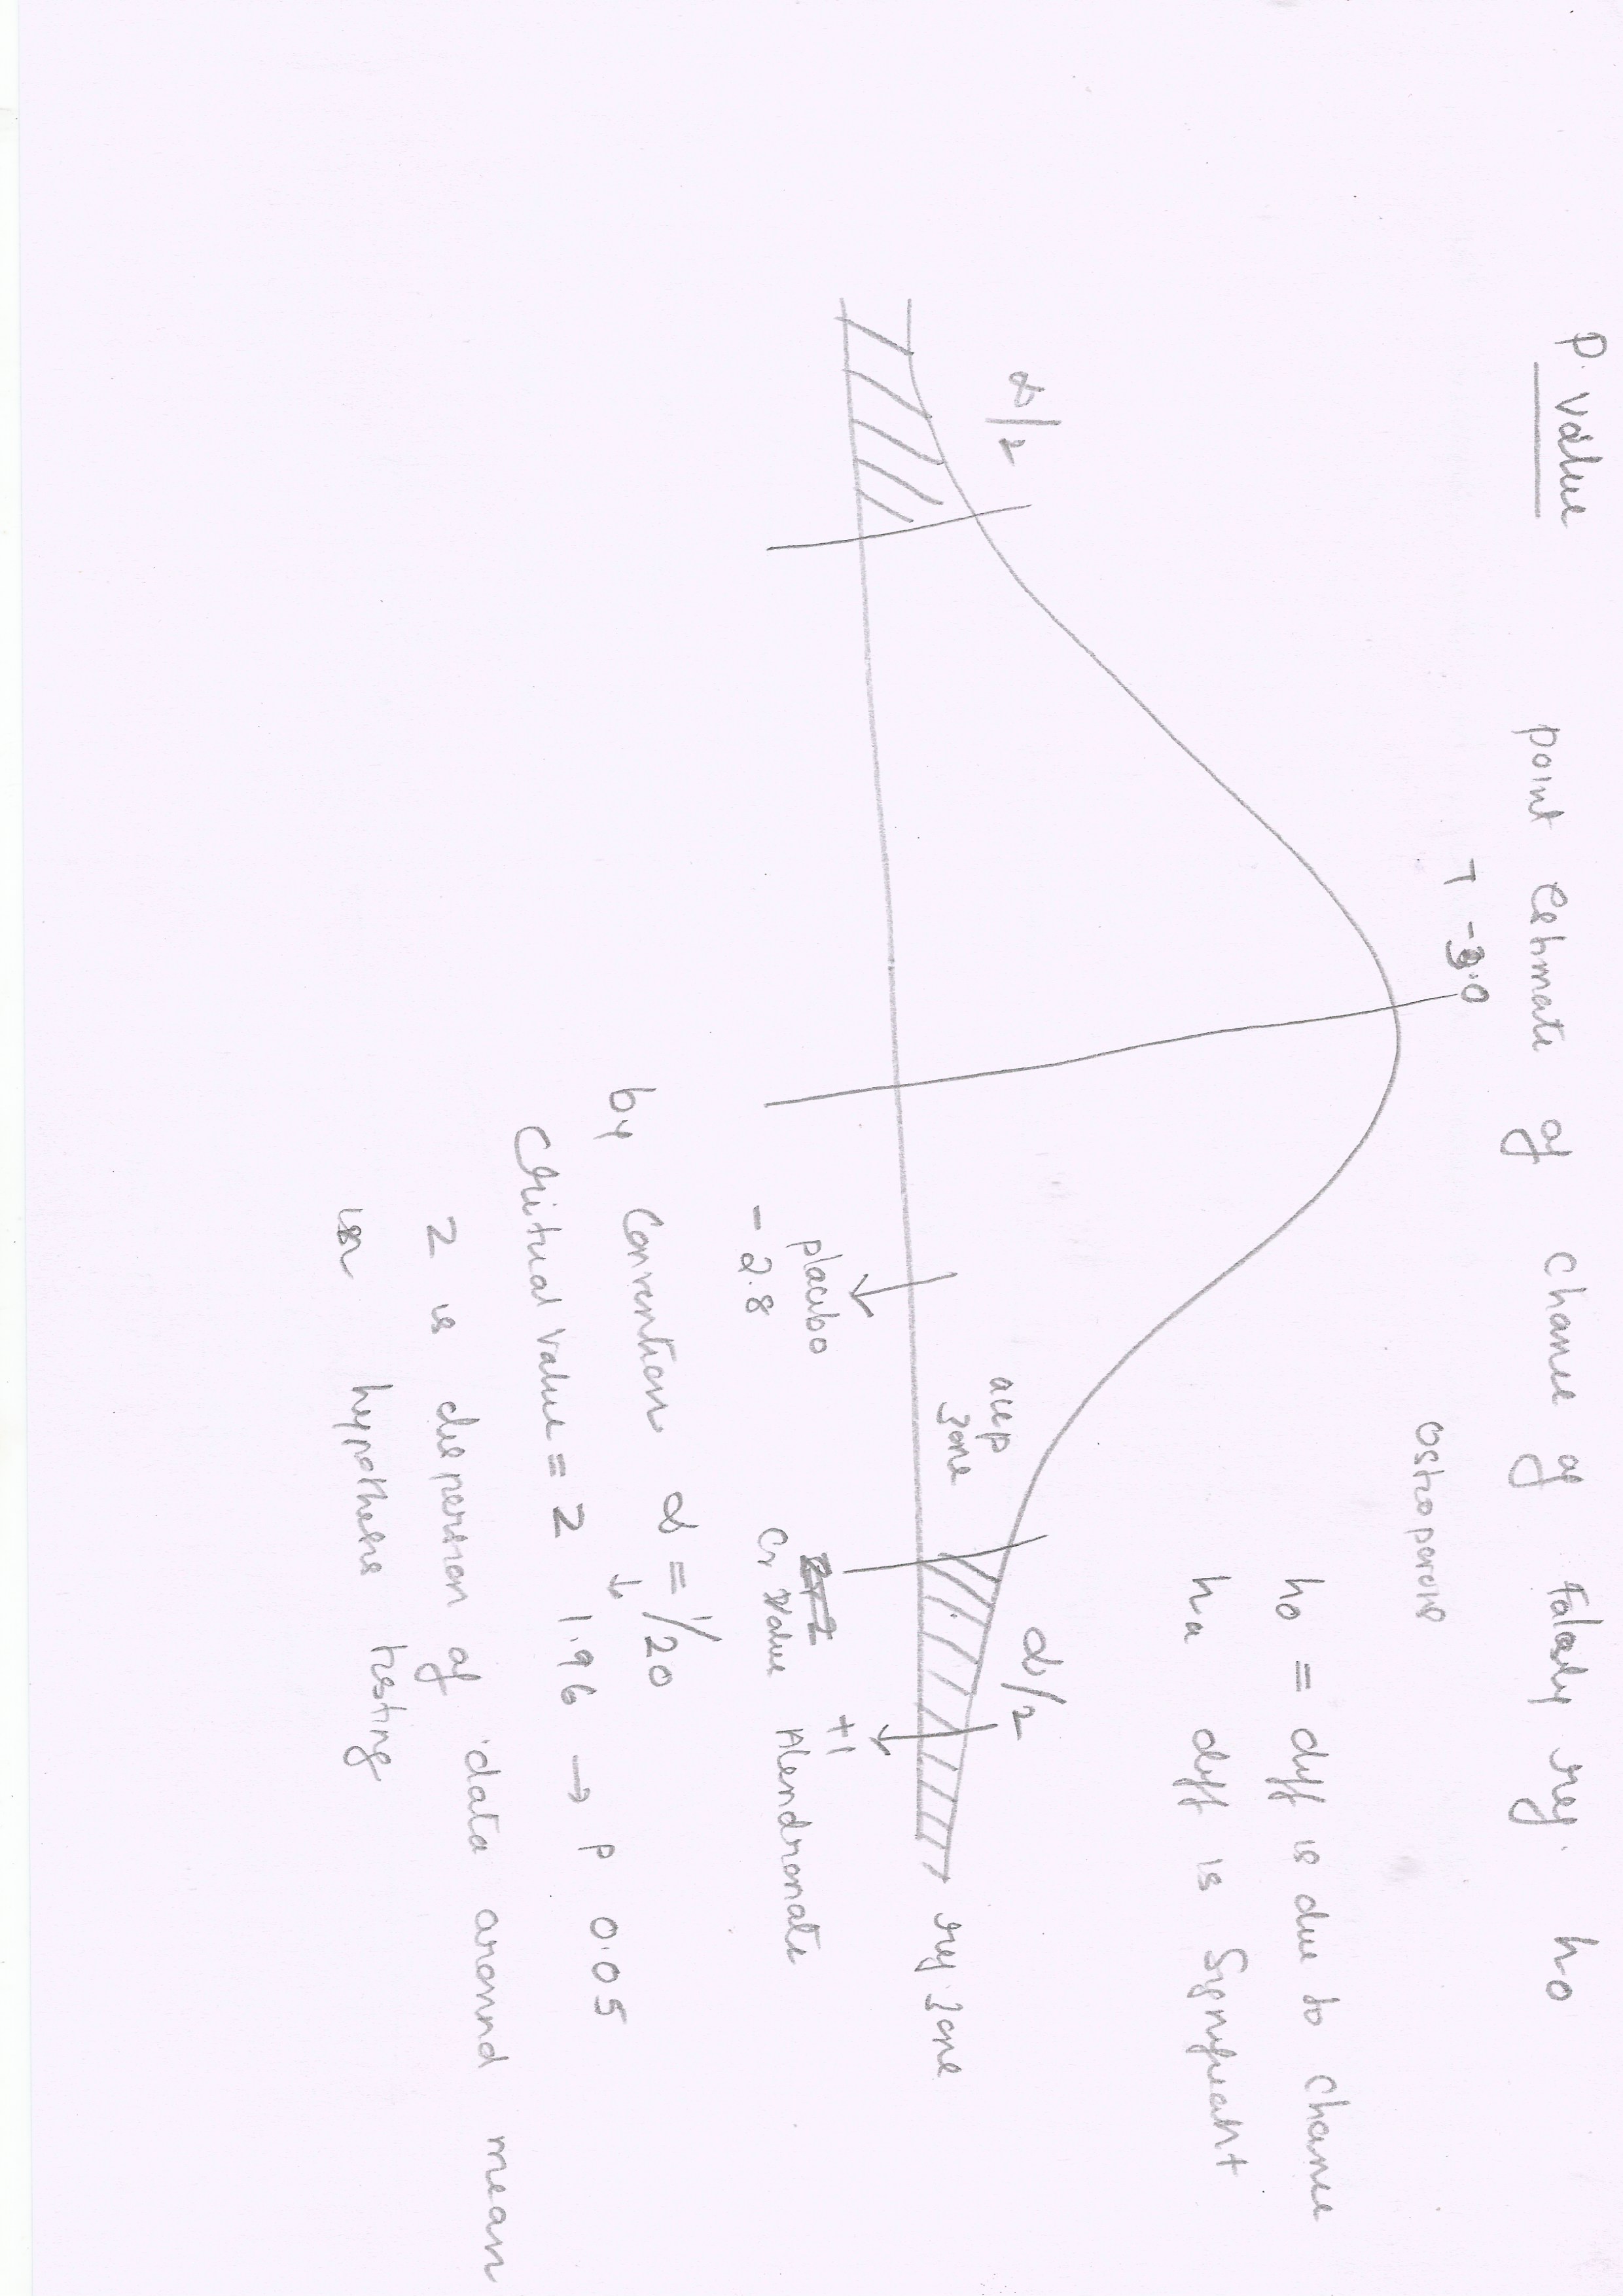 P. value
point estimate of chance of Falsly rej. h0
T -3.0
Osteoporosis
h0 = diff is due to chance
ha diff is Significant
α/2
α/2
accp
zone
rej. zone
placibo
- 2.8
Cr Value
+1
Alendronate
by Convention α = 1/20
↓
Critical value = Z 1.96 → P 0.05
Z is dispersion of data around mean
in hypothesis testing